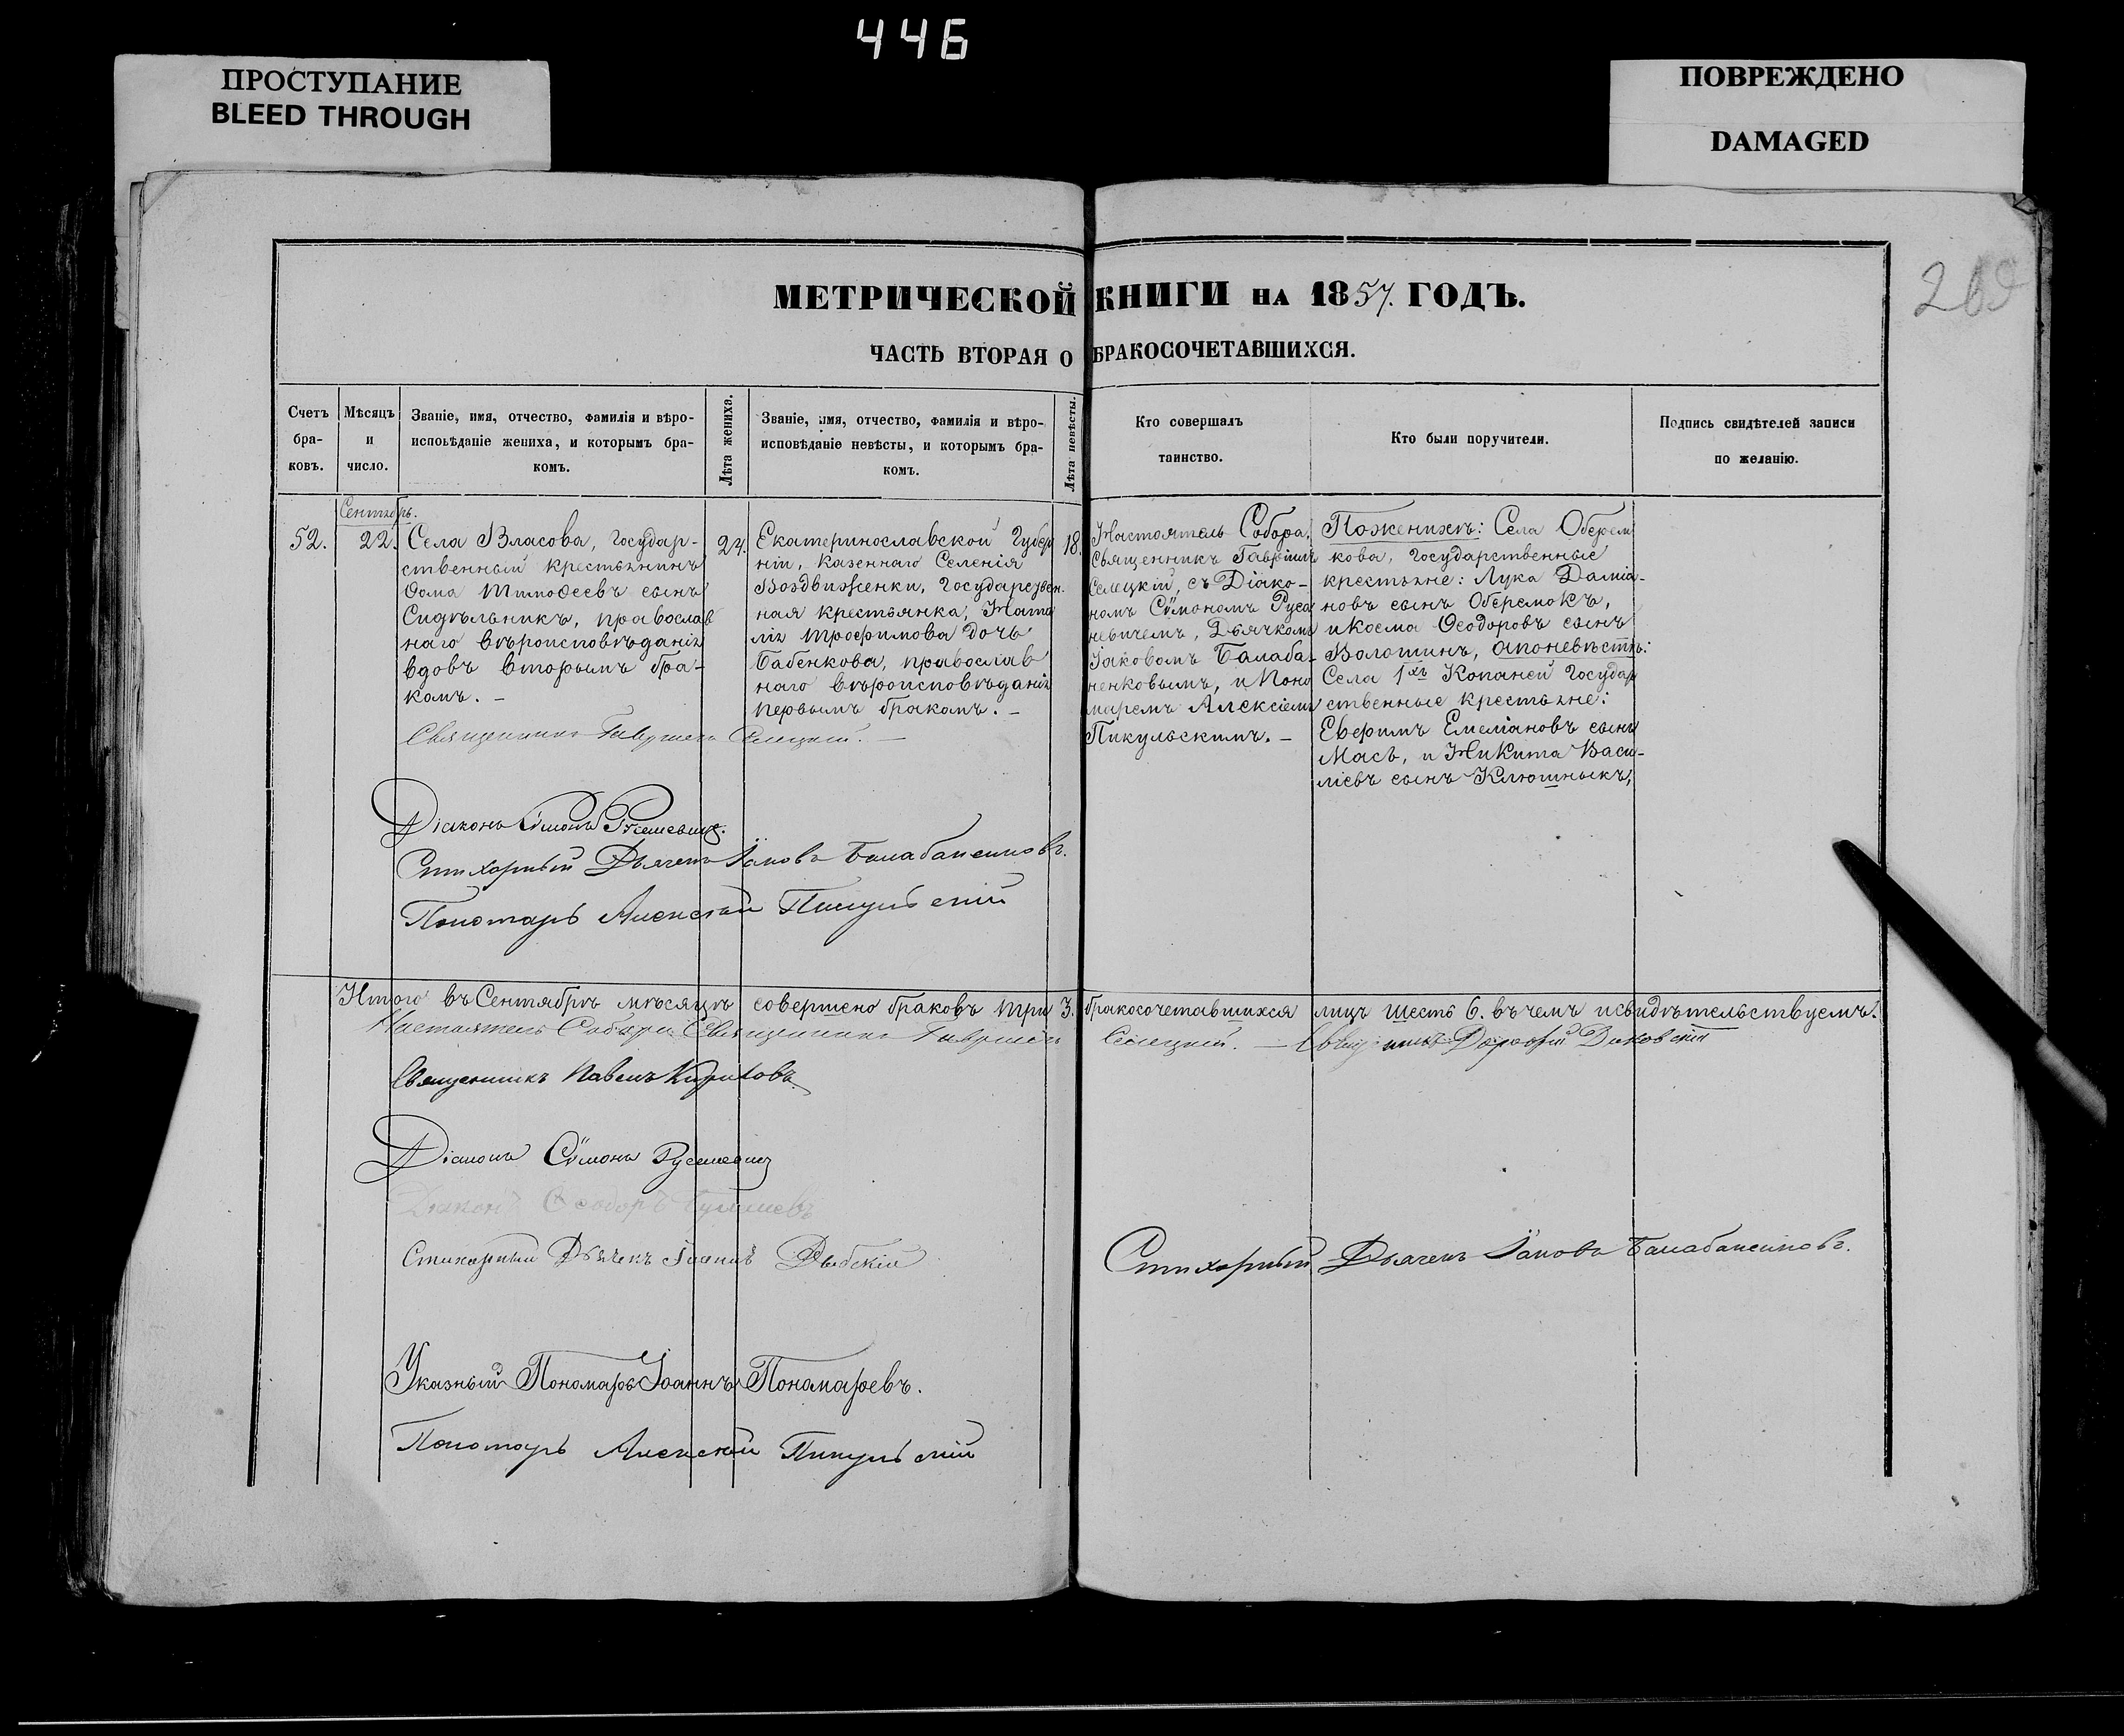 446
ПРОСТУПАНИЕ
BLEED THROUGH
ПОВРЕЖДЕНО
DAMAGED
МЕТРИЧЕСКОЙ КНИГИ НА 1857. ГОДЪ.
ЧАСТЬ ВТОРАЯ О БРАКОСОЧЕТАВШИХСЯ.
Счетъ
бра-
ковъ.
Мѣсяцъ
и
число.
Званіе, имя, отчество, фамилія и вѣро-
исповѣданіе жениха, и которымъ бра-
комъ.
Лѣта жениха.
Званіе, имя, отчество, фамилія и вѣро-
исповѣданіе невѣсты, и которымъ бра-
комъ.
Лѣта невѣсты.
Кто совершалъ
таинство.
Кто были поручители.
Подпись свидѣтелей записи
по желанію.
52.
Сентябрь.
22.
Села Власова, Государ-
ственный крестьянинъ
Ѳома Тимоѳеевъ сынъ
Сидѣльникъ, православ
наго вѣроисповѣданія
вдовъ вторымъ бра-
комъ. –
24.
Екатеринославской Губер
ніи, казеннаго Селенія
Воздвиженки, Государствен.
ная крестьянка, Ната
лія Трофимова дочь
Бабенкова, православ
наго вѣроисповѣданія
первымъ бракомъ. –
18.
Настоятель Собора,
Священникъ Гавріилъ
Селецкій, съ Діако-
номъ Сѵмономъ Руса
невичемъ, Дьячкомъ
Іаковомъ Балаба-
ненковымъ, и Поно
маремъ Алексіемъ
Пикульскимъ. –
Поженихѣ: Села Оберем
кова, Государственные
крестьяне: Лука Даміа-
новъ сынъ Оберемокъ,
и Косма Ѳеодоровъ сынъ
Волошинъ, апоневѣстѣ:
Села 1хъ Копаней Государ
ственные крестьяне:
Ефримъ Емеліановъ сынъ
Мась, и Никита Васи-
ліевъ сынъ Клюшныкъ,
Священникъ Гавріилъ Селецкій. –
Діаконъ Сѵмонъ Русаневичъ.
Стихарный Дьячекъ Іаковъ Балабаненковъ.
Пономарь Алексѣй Пикульскій
Итого въ Сентябрѣ мѣсяцѣ совершено браковъ три 3. бракосочетавшихся лицъ шесть 6. въ чемъ и свидѣтельствуемъ.
Настоятель Собора Священникъ Гавріилъ Селецкій. –
Священникъ Павелъ
Діаконъ Сѵмонъ Русаневичъ
Діаконъ Ѳеодоръ
Стихарный Дьячекъ Іоаннъ
Стихарный Дьячекъ Іаковъ Балабаненковъ.
Указный Пономарь Іоаннъ Пономаревъ.
Пономарь Алексѣй Пикульскій